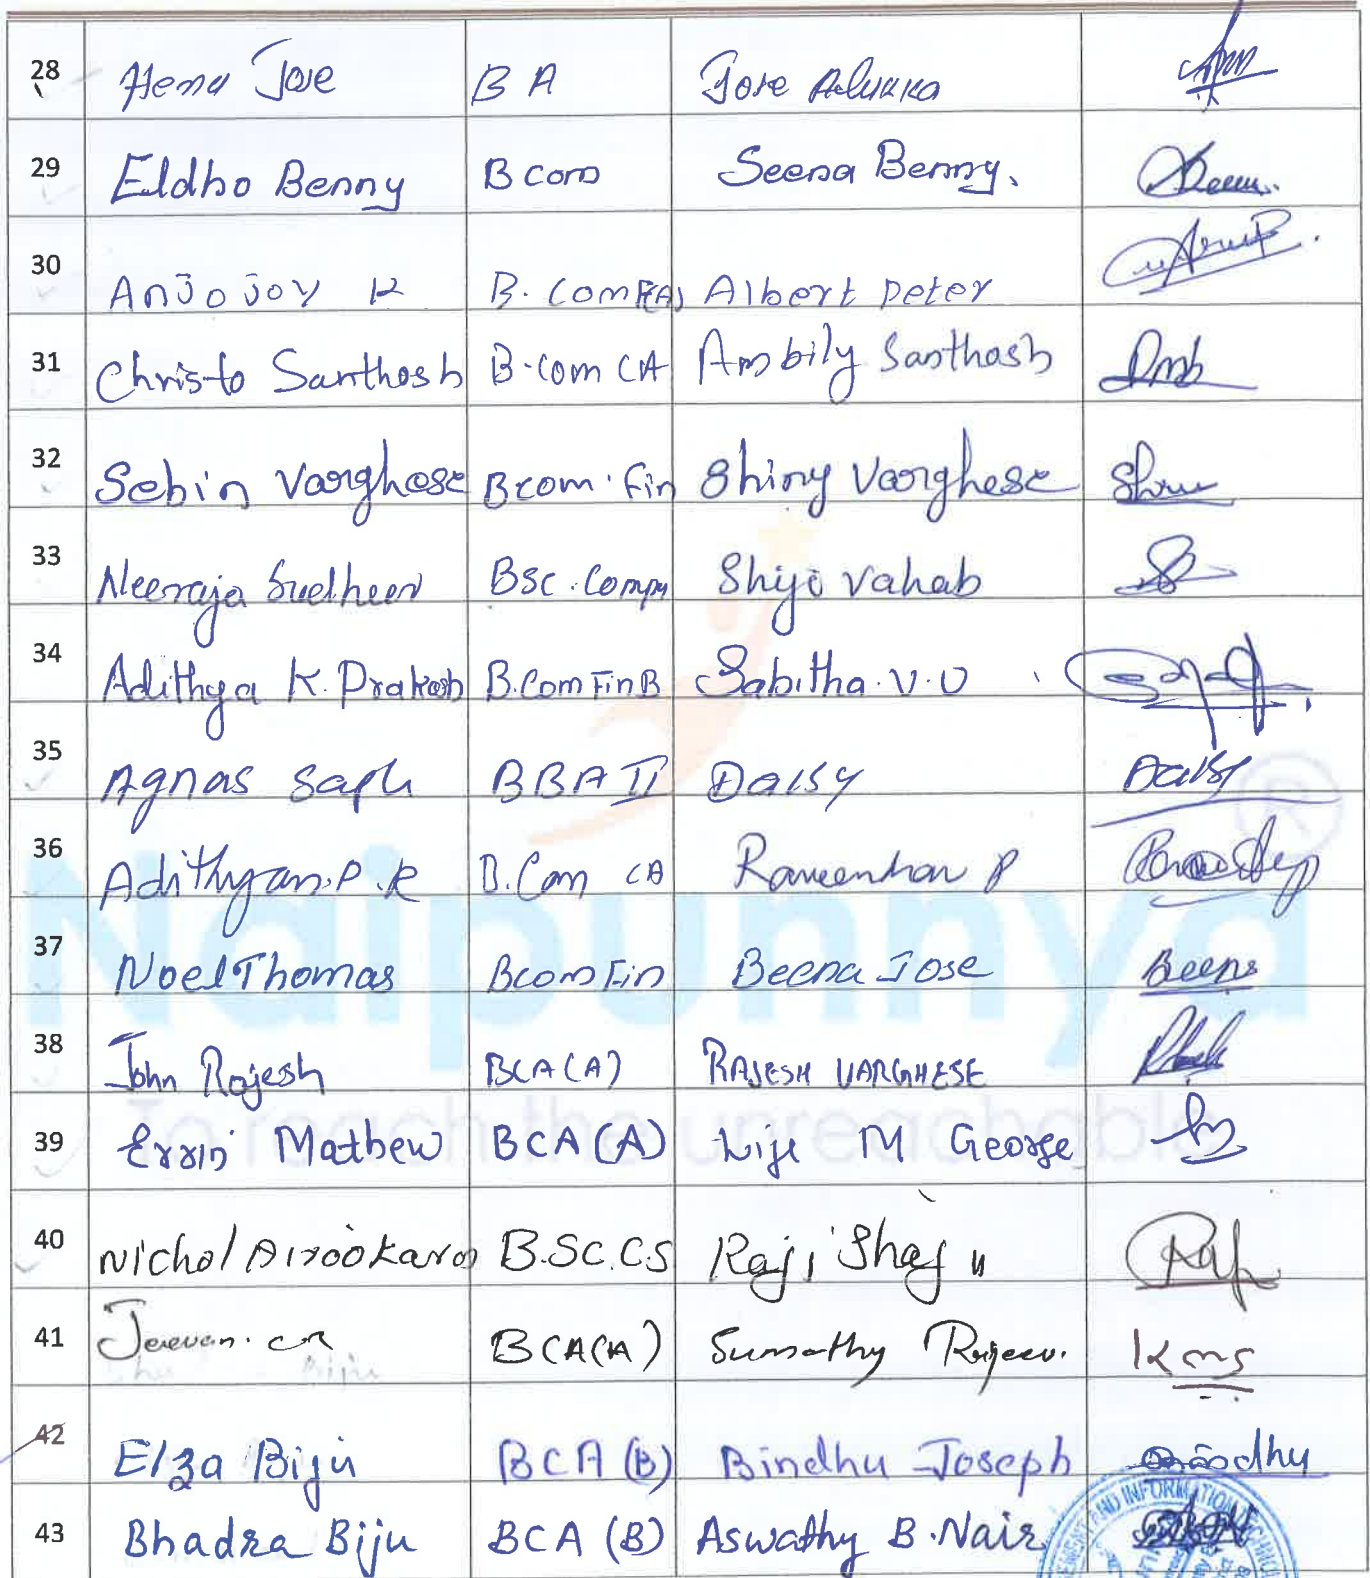 28 Hena Jose BA Jose Alukka
29 Eldho Benny B com Seena Benny.
30 Anjo joy K B. Com(FA) Albert peter
31 Christo Santhosh B.com CA Ambily Santhosh Amb
32 Sebin Varghese Bcom. fin Shiny Varghese
33 Neeraja Sudheer BSC. Comp Shiji Vahab
34 Adithya K. Prakash B.Com Fin B Sabitha. V. U
35 Agnas Saph BBA II Daisy Daisy
36 Adithyan. P. R B.Com CA Raveendran P
37 Noel Thomas Bcom Fin Beena Jose Beena
38 John Rajesh BCA (A) RAJESH VARGHESE
39 Errin Mathew BCA (A) Lije M George
40 Nichol B.SC.CS Raji Shaju Raji
41 Jeevan. C R BCA(A) Sumathy Rajeev.
42 Elza Biju BCA (B) Bindhu Joseph Bindhu
43 Bhadra Biju BCA (B) Aswathy B. Nair
Naipunnya ®
To reach the unreachable
AND INFORMATION